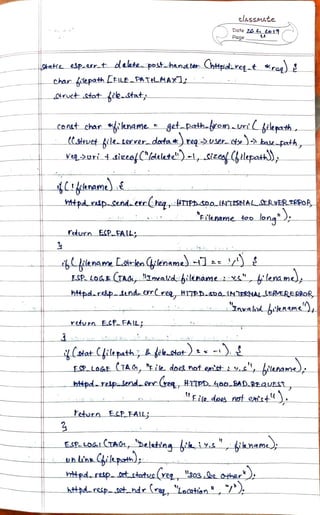 classmate
Date 20.6.2019
Page
static esp_err_t delete_post_handler (httpd_req_t *req) {
char filepath [FILE_PATH_MAX];
struct stat file_stat;
const char *filename = get_path_from_uri ( filepath,
((struct file_server_data *) req → user_ctx) → base_path,
req→uri + sizeof ("/delete") -1, sizeof (filepath));
if (!filename) {
httpd_resp_send_err (req, HTTPD_500_INTERNAL_SERVER_ERROR,
"Filename too long");
return ESP_FAIL;
}
if ( filename [strlen (filename) -1] == '/') {
ESP_LOGE (TAG, "Invalid filename : %s", filename);
httpd_resp_send_err ( req, HTTPD_500_INTERNAL_SERVER_ERROR,
"Invalid filename");
return ESP_FAIL;
}
if (stat (filepath, & file_stat) == -1) {
ESP_LOGE (TAG, "File does not exist : %s", filename);
httpd_resp_send_err (req, HTTPD_400_BAD_REQUEST,
"File does not exist");
return ESP_FAIL;
}
ESP_LOGI (TAG, "Deleting file : %s", filename);
unlink (filepath);
httpd_resp_set_status (req, "303 See Other");
httpd_resp_set_hdr (req, "Location", "/");